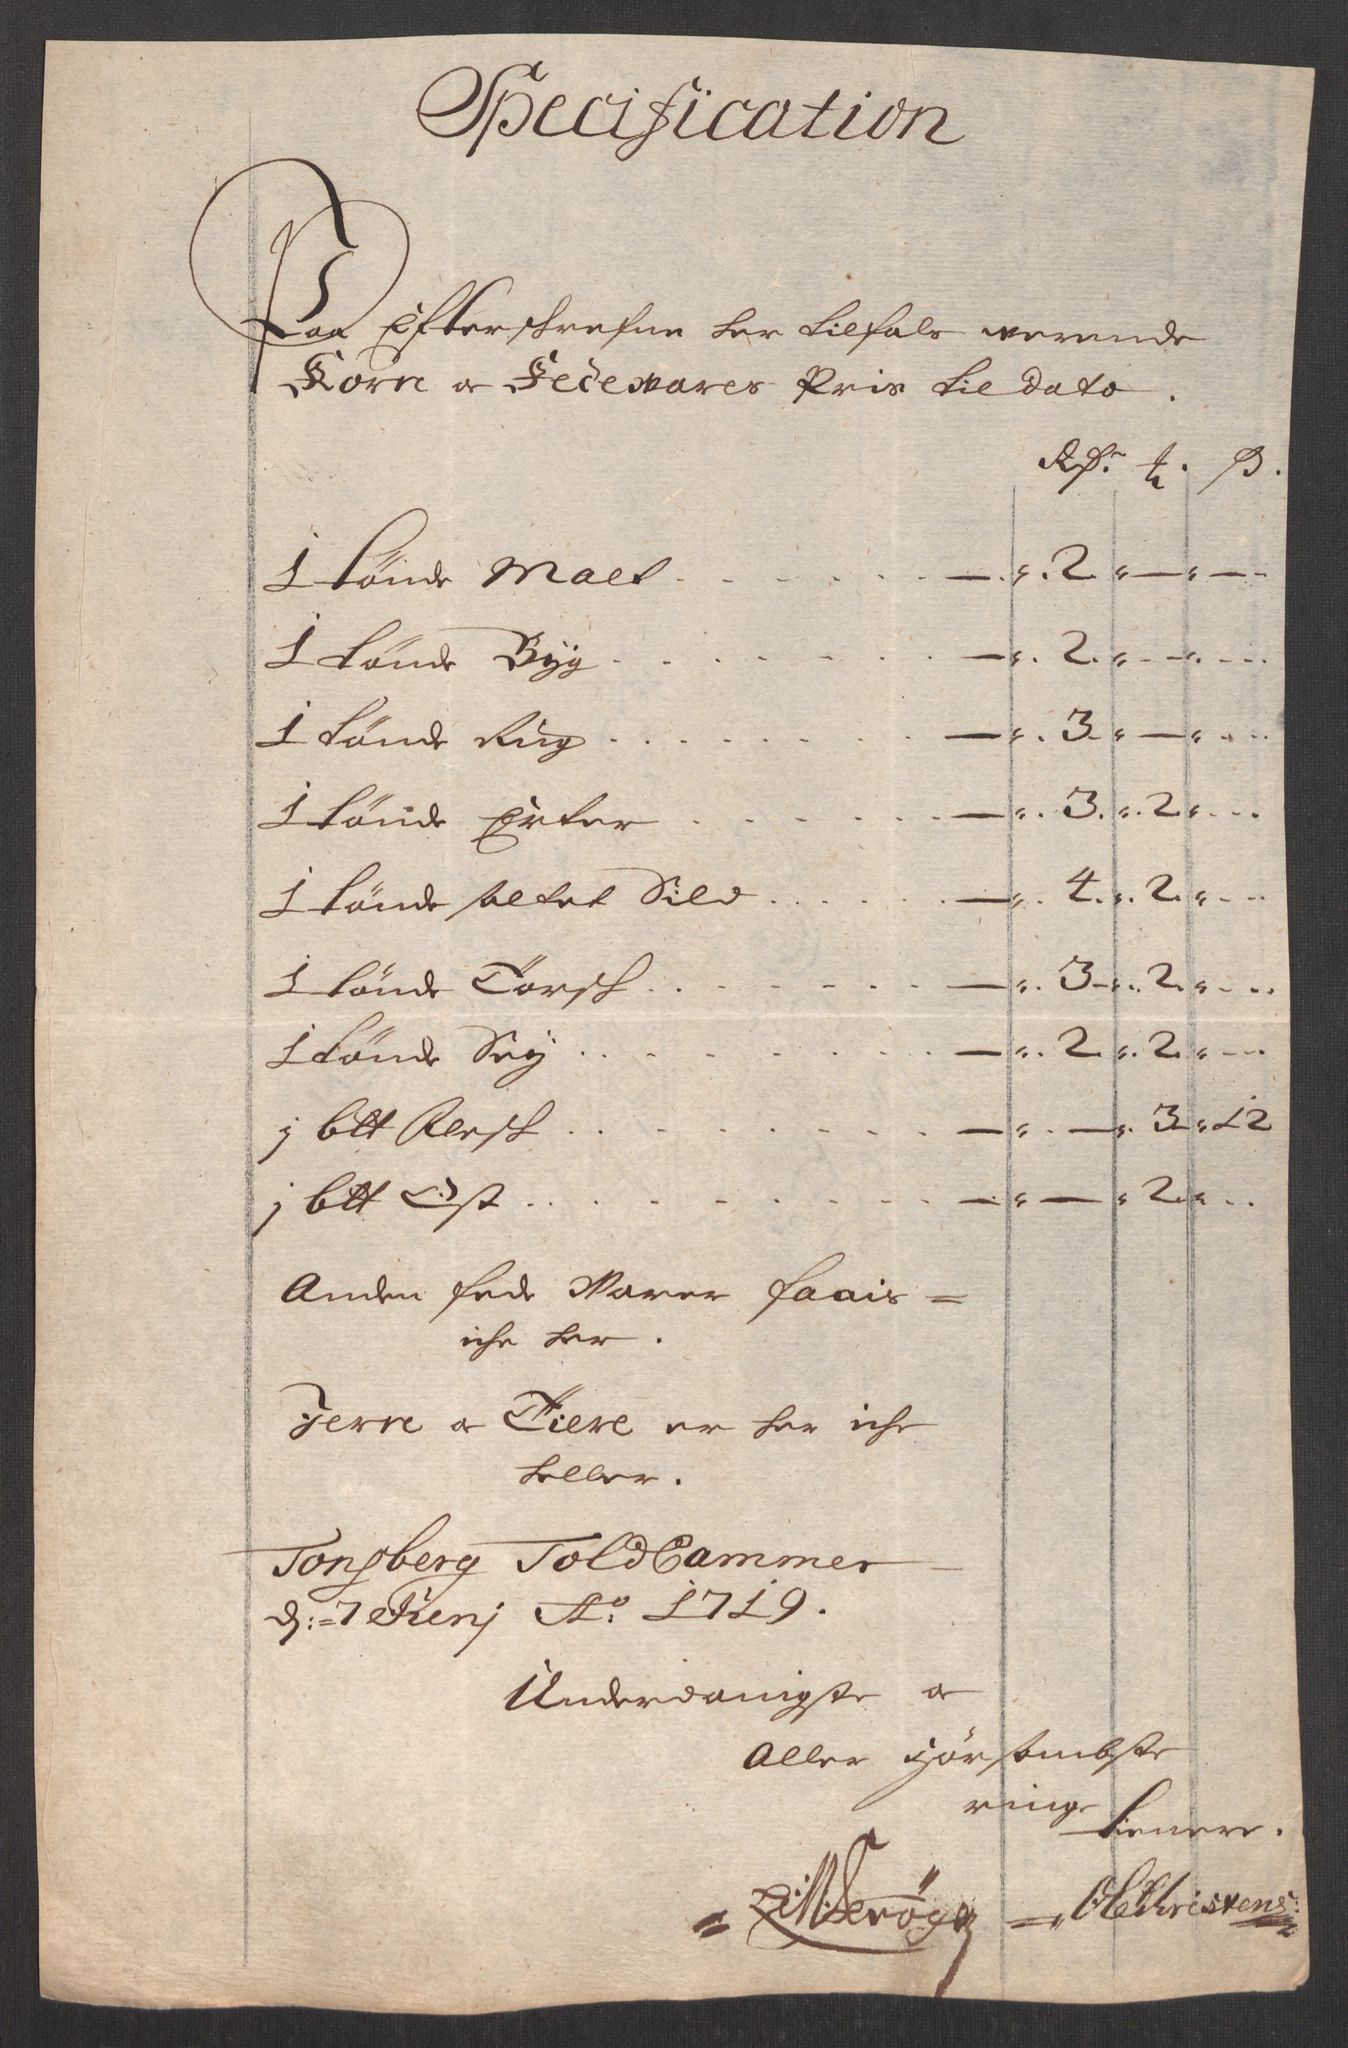 Specification
Paa Efterskrefne her tilfals werende
Korn a Fedewares Pris til dato.
Rdr. ℔. ß.
1 tønde Malt . . . . . . — „ . 2. „ — „ —
1 tønde Bÿg . . . . . . — „ . 2. „ - - „ . - -
1 tønde Rug . . . . . . — „ . 3. „ — „ . - -
1 tønde Erter . . . . . . — „ . 3. „ . 2 „ . - -
1 tønde saltet Sild . . . . . . — „ . 4. „ . 2. „ . - -
1 tønde Torsk . . . . . . — „ . 3 - „ . 2. „ . - -
1 tønde Seÿ . . . . . . — „ . 2. „ . 2. „ - -
j btt Flesk . . . . . . — „ . — „ . 3 „ 12
j btt Ost . . . . . . — „ — „ 2. „ . .
Anden fede Warer faais =
iche her.
Jern a Tiere er her iche
heller.
Tonsberg ToldCammer
d: 7 Junj Ao. 1719.
Underdanigste a
Aller hörsambste
ringe
tienere.
OChristens: